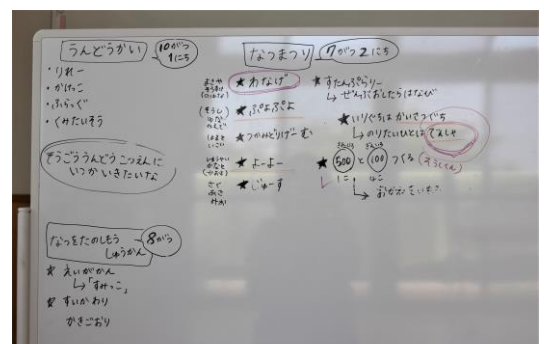 うんどうかい
10がつ
1にち
・りれー
・かけっこ
・ふらっぐ
・くみたいそう
そうごううんどうこうえんに
いつかいきたいな
なつをたのしもう
しゅうかん
8がつ
★ えいがかん
↳「すみっこ」
★ すいかわり
かきごおり
なつまつり
7がつ2にち
★わなげ
★ぷよぷよ
★つかみどりげーむ
★よーよー
★じゅーす
さく
あさ
★すたんぷらりー
↳ ぜんぶおしたらはなび
★いりぐちはかいさつぐち
↳ のりたいひとは
★ 500 と 100 つくる
1こ